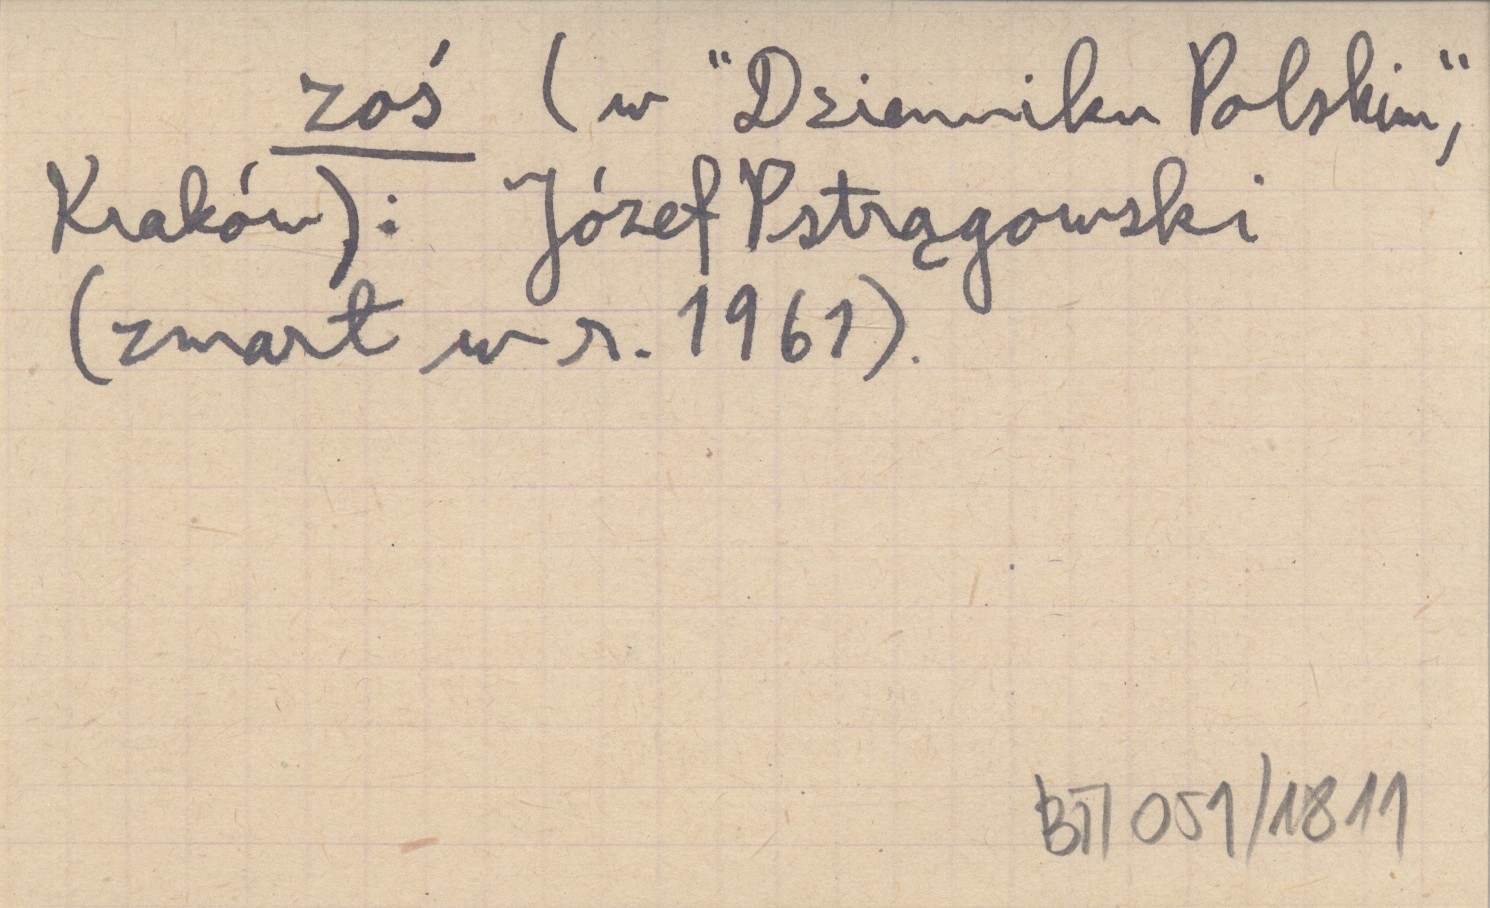 zoś (w "Dzienniku Polskim",
Kraków): Józef Pstrągowski
(zmarł w r. 1961).
BTI 051/1811